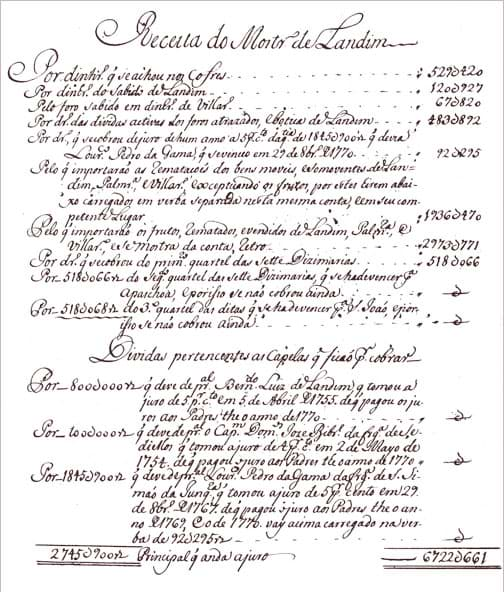 Receita do Mostr.º de Landim
Por dinhr.º q̃ se achou nos Cofres - - - 529$420
Por dinhr.º do Sabido de Landim - - - 120$927
Pelo foro Sabido em dinhr.º de Villar - - - 67$820
Por dr.º das dividas activas dos foros atrazados, e botica de Landim - - 483$892
Por dr.º, q̃ se cobrou de juro de hum anno a 5 p.r C.to da q.tia de 1845$900 rz q̃ devia
Lour.ço Pedro da Gama, q̃ se venceo em 29 de 8br.º 1770 - - - 92$295
Pelo q̃ importarão as Rematações dos bens moveis, e semoventes de Lan-
dim, Palmr.ª, e Villar, exceptuando os frutos, por estes hirem abai-
xo carregados em verba separada nesta mesma conta, e em seu com-
petente Lugar - - - 1736$470
Pelo q̃ importarão os frutos, Rematados, e vendidos de Landim, Palmr.ª, e
Villar, e se mostra da conta, retro - - - 2973$771
Por dr.º q̃ se cobrou do prim.ro quartel das sette Dizimarias - - - 518$066
Por 518$066 rz do seg.do quartel das sette Dizimarias, q̃ se ha de vencer p.ª
Apaschoa, e por isso se não cobrou ainda - - -
Por 518$068 rz do 3.º quartel das ditas q̃ se ha de vencer p.r S. João, e por
isso se não cobrou ainda - - -
Dividas pertencentes as Capelas q̃ ficão p.ª cobrar
Por 800$000 rz q̃ deve de pr.al Bern.do Luiz de Landim, q̃ tomou a
juro de 5 p.r C.to em 5 de Abril 1755. de q̃ pagou os ju-
ros aos Padres the o anno de 1770 - - -
Por 100$000 rz q̃ deve de pr.al o Cap.m Dom.os Joze Ribr.º da frg.ª de Se-
dielos q̃ tomou ajuro de 5 p.r C. em 2 de Mayo de
1754. de q̃ pagou juro aos Padres the o anno de 1770 -
Por 1845$900 rz q̃ deve de pr.al Lour.ço Pedro da Gama da frg.ª de S. Si-
mão da Junq.ra, q̃ tomou a juro de 5 p.r Cento em 29.
de 8br.º 1767. de q̃ pagou juro aos Padres the o an-
no 1769, e o de 1770. vay acima carregado na ver-
ba de 92$295 rz - - -
2745$900 rz Principal q̃ anda a juro 6722$661